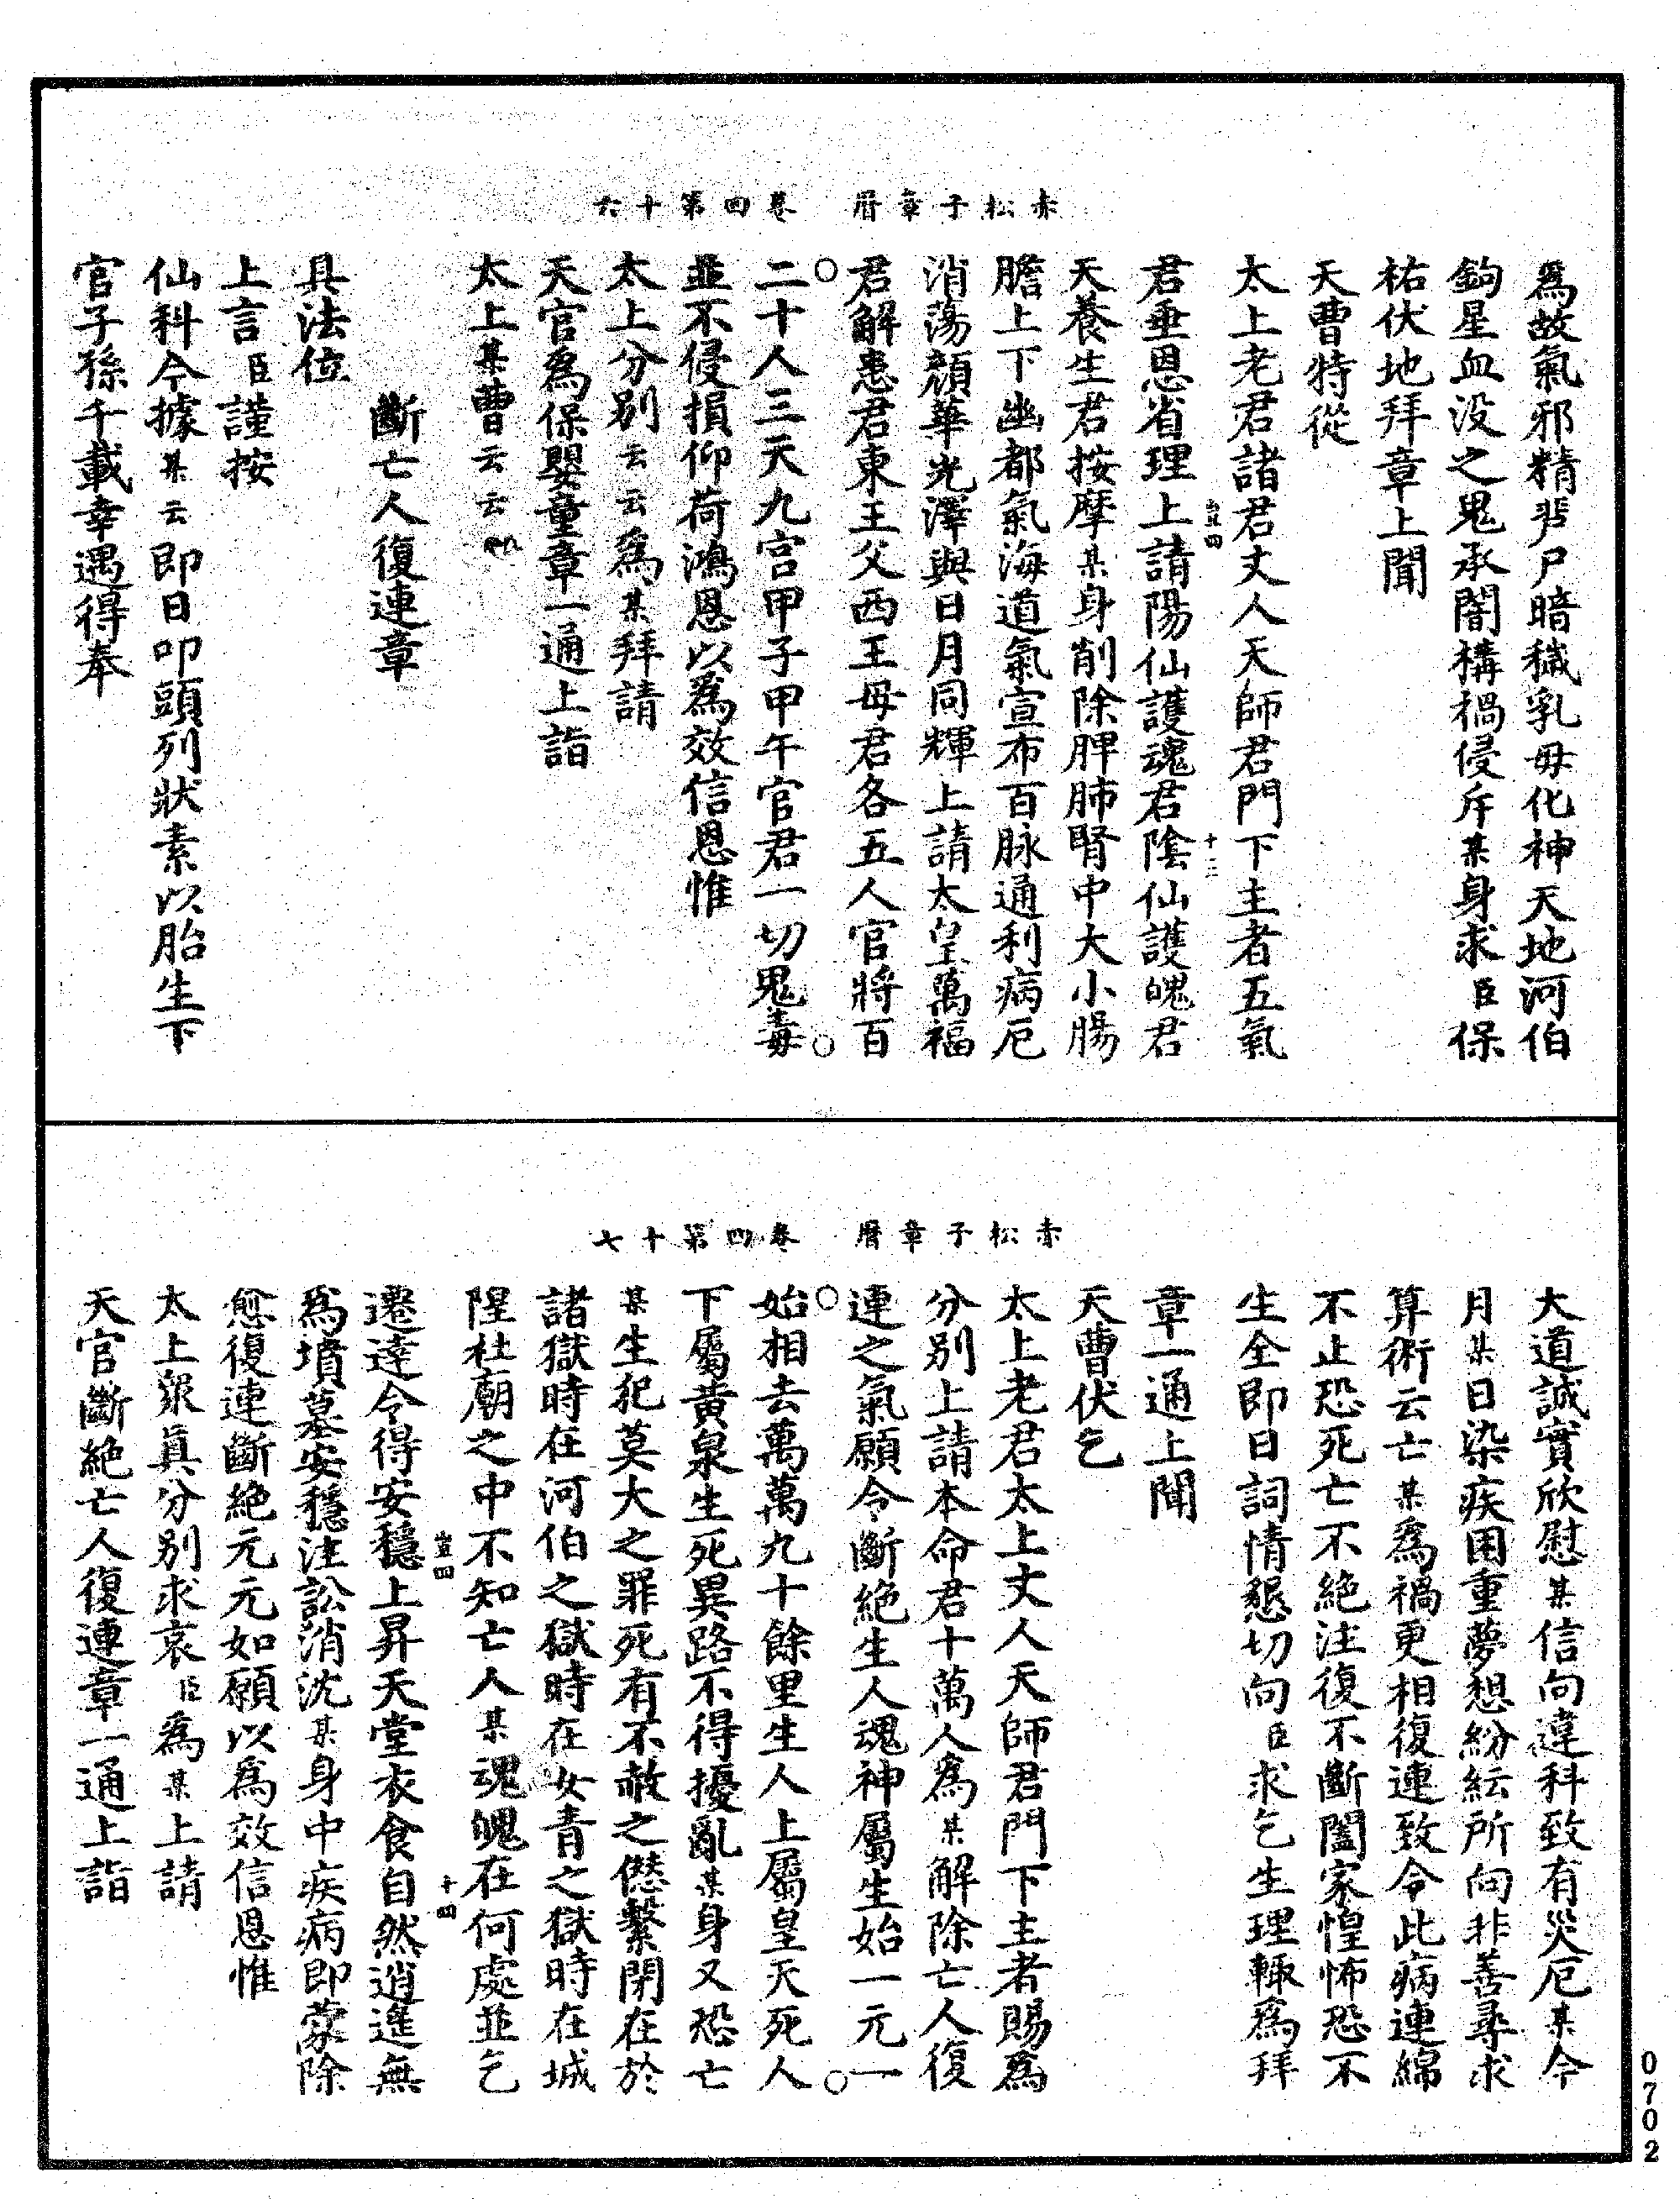 赤松子章曆　卷四第十六
爲故氣邪精悲尸暗穢乳母化神天地河伯
鉤星血没之鬼承闇構禍侵斥某身求臣保
祐伏地拜章上聞
天曹特從
太上老君諸君丈人天師君門下主者五氣
君垂恩省理上請陽仙護魂君陰仙護魄君
天養生君按摩某身削除脾肺腎中大小腸
膽上下幽都氣海道氣宣布百脉通利病厄
消蕩顔華光澤與日月同輝上請太皇萬福
君解患君東王父西王母君各五人官將百
二十人三天九宫甲子甲午官君一切鬼毒
並不侵損仰荷鴻恩以爲效信恩惟
太上分别云云爲某拜請
天官爲保嬰童章一通上詣
太上某曹云云
斷亡人復連章
具法位
上言臣謹按
仙科今據某云即日叩頭列狀素以胎生下
官子孫千載幸遇得奉
赤松子章曆　卷四第十七
大道誠實欣慰某信向違科致有災厄某今
月某日染疾困重夢想紛紜所向非善尋求
算術云亡某爲禍更相復連致令此病連綿
不止恐死亡不絶注復不斷闔家惶怖恐不
生全即日詞情懇切向臣求乞生理輒爲拜
章一通上聞
天曹伏乞
太上老君太上丈人天師君門下主者賜爲
分别上請本命君十萬人爲某解除亡人復
連之氣願令斷絶生人魂神屬生始一元一
始相去萬萬九十餘里生人上屬皇天死人
下屬黄泉生死異路不得擾亂某身又恐亡
某生犯莫大之罪死有不赦之愆繫閉在於
諸獄時在河伯之獄時在女青之獄時在城
隍社廟之中不知亡人某魂魄在何處並乞
遷達令得安穩上昇天堂衣食自然逍遥無
爲墳墓安穩注訟消沈某身中疾病即蒙除
愈復連斷絶元元如願以爲效信恩惟
太上衆眞分别求哀臣爲某上請
天官斷絶亡人復連章一通上詣
0702